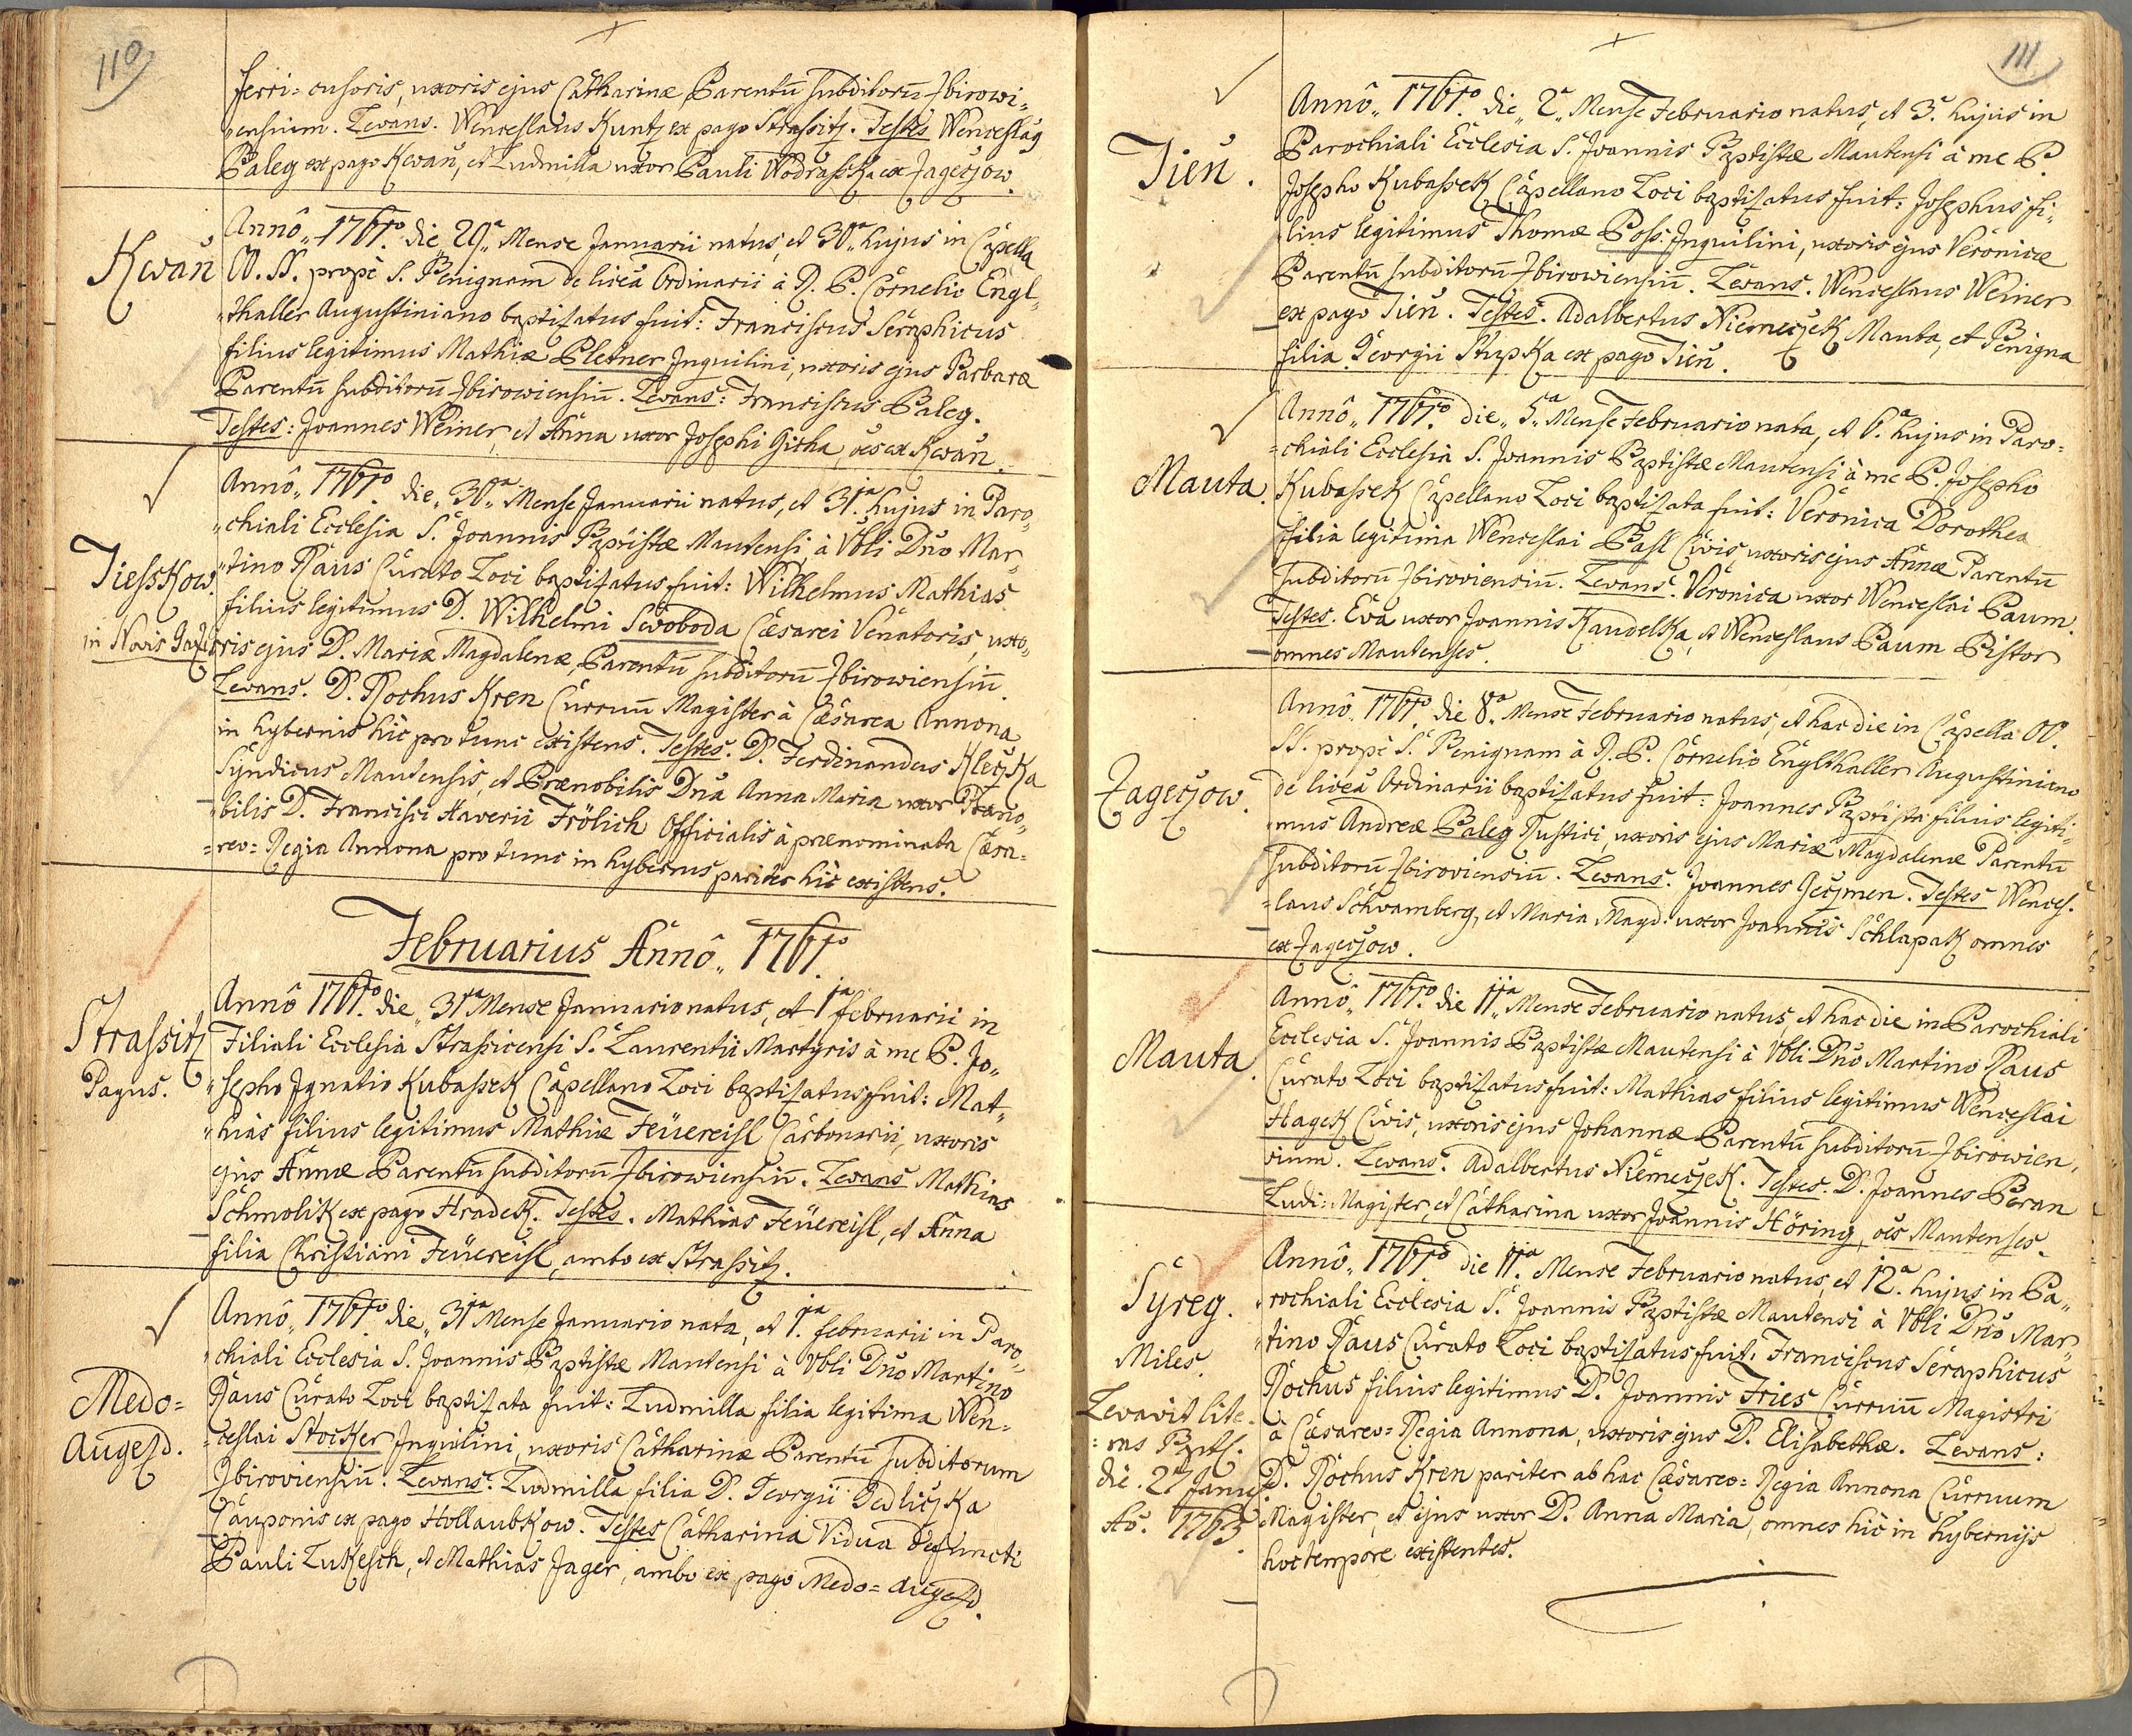 110
ferri-cusoris, uxoris ejus Catharinæ Parentū subditorū Zbirowi-
censium. Levans. Wenceslaus Kuntz ex pago Strassitz. Testes Wenceslaq
Paleg ex pago Kwaň, et Ludmilla uxor Pauli Wodrasska ex Zagerzow.
Kwaň
Annô 1761mo. die 29na Mense Januarii natus, et 30a hujus in Capella
OO. SS. propè S. Benignam de licéa Ordinarii à R. P. Cornelio Engl-
thaller Augustiniano baptizatus fuit: Franciscus Seraphicus
filius legitimus Mathiæ Pletner Inquilini, uxoris ejus Barbaræ
Parentū subditorū Zbirowiensiū. Levans: Franciscus Paleg.
Testes: Joannes Weiner, et Anna uxor Josephi Gicha, oēs ex Kwaň.
Tiesskow.
in Novis Dom.
Annô 1761mo. die 30a Mense Januarii natus, et 31ma. hujus in Paro-
chiali Ecclesia S. Joannis Baptistæ Mautensi, à Vbli Dño Mar-
tino Raus Curato Loci baptizatus fuit: Wilhelmus Mathias
filius legitimus D. Wilhelmi Swoboda Cæsarei Venatoris, uxo-
ris ejus D. Mariæ Magdalenæ, Parentū subditorū Zbirowiensiū.
Levans. D. Rochus Kren Curruū Magister à Cæsarea Annona
in hybernis hic pro tunc existens. Testes. D. Ferdinandus Kleczka
Syndicus Mautensis, et Prænobilis Dña Anna Maria uxor Præno-
bilis D. Francisci Xaverii Frölich Officialis à prænominata Cæsa-
reo-Regia Annona pro tunc in hybernis pariter hic existens.
Februarius Annô 1761mo.
Strassitz
Pagus.
Annô 1761mo. die 31ma Mense Januario natus, et 1ma februarii in
Filiali Ecclesia Strassicensi S. Laurentii Martyris à me P. Jo-
sepho Ignatio Kubassek Capellano Loci baptizatus fuit: Mat-
hias filius legitimus Mathiæ Feüereisl Carbonarii, uxoris
ejus Annæ Parentū subditorū Zbirowiensiū. Levans Mathias
Schmolik ex pago Hradek. Testes. Mathias Feüereisl, et Anna
filia Christiani Feüereisl, ambo ex Strassitz.
Medo-
Augezd.
Annô 1761mo. die 31ma Mense Januario nata, et 1ma. februarii in Paro-
chiali Ecclesia S. Joannis Baptistæ Mautensi à Vbli Dño Martino
Raus Curato Loci baptizata fuit: Ludmilla filia legitima Wen-
ceslai Stocker Inquilini, uxoris Catharinæ Parentū subditorum
Zbiroviensiū. Levans. Ludmilla filia D. Georgii Sedliczka
Cauponis ex pago Hollaubkow. Testes Catharina Vidua defuncti
Pauli Lukesch, et Mathias Jager, ambo ex pago Medo-Augezd.
111
Tieň.
Annô 1761mo. die 2a Mense Februario natus, et 3a. hujus in
Parochiali Ecclesia S. Joannis Baptistæ Mautensi à me P.
Josepho Kubassek Capellano Loci baptizatus fuit: Josephus fi-
lius legitimus Thomæ Poss. Inquilini, uxoris ejus Veronicæ
Parentū subditorū Zbirowiensiū. Levans. Wenceslaus Weiner
ex pago Tieň. Testes. Adalbertus Niemeczek Mauta, et Benigna
filia Georgii Stupka ex pago Tieň.
Mauta.
Annô 1761mo. die 5a Mense Februario nata, et 6a. hujus in Paro-
chiali Ecclesia S. Joannis Baptistæ Mautensi à me P. Josepho
Kubassek Capellano Loci baptizata fuit: Veronica Dorothea
filia legitima Wenceslai Pasl Civis, uxoris ejus Annæ Parentū
subditorū Zbiroviensiū. Levans. Veronica uxor Wenceslai Paum.
Testes. Eva uxor Joannis Kaudelka, et Wenceslaus Paum Pistor
omnes Mautenses.
Zagerzow.
Annô 1761mo. die 8a Mense Februario natus, et hac die in Capella OO.
SS. propè S. Benignam à R. P. Cornelio Englthaller Augustiniano
de licéa Ordinarii baptizatus fuit: Joannes Baptista filius legiti-
mus Andreæ Paleg Rustici, uxoris ejus Mariæ Magdalenæ Parentū
subditorū Zbiroviensiū. Levans. Joannes Geczmen. Testes Wences-
laus Schwamberg, et Maria Magd: uxor Joannis Schlapak omnes
ex Zagerzow.
Mauta.
Annô 1761mo. die 11ma Mense Februario natus, et hac die in Parochiali
Ecclesia S. Joannis Baptistæ Mautensi à Vbli Dño Martino Raus
Curato Loci baptizatus fuit: Mathias filius legitimus Wenceslai
Hagek Civis, uxoris ejus Johannæ Parentū subditorū Zbirowien-
sium. Levans. Adalbertus Niemeczek. Testes. D. Joannes Beran
Ludi-Magister, et Catharina uxor Joannis Höring, oēs Mautenses.
Syreg.
Miles.
Levavit lite-
ras Bpts.
die 27 Janu
Ao. 1763.
Annô 1761mo die 11ma. Mense Februario natus, et 12a. hujus in Pa-
rochiali Ecclesia S. Joannis Baptistæ Mautensi à Vbli Dño Mar-
tino Raus Curato Loci baptizatus fuit. Franciscus Seraphicus
Rochus filius legitimus D. Joannis Fries Curruū Magistri
à Cæsareo-Regia Annona, uxoris ejus D. Elisabethæ. Levans:
D. Rochus Kren pariter ab hac Cæsareo-Regia Annona Curruum
Magister, et ejus uxor D. Anna Maria, omnes hic in hybernijs
hoc tempore existentes.